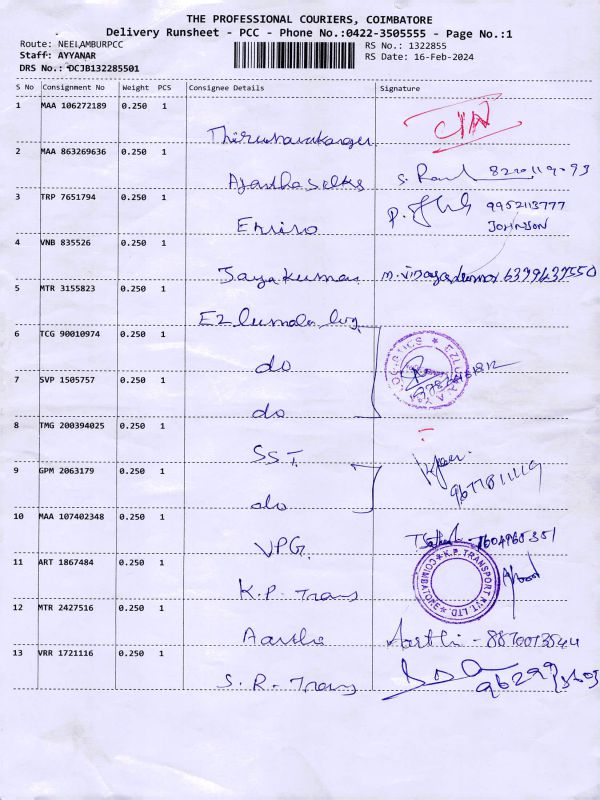 THE PROFESSIONAL COURIERS, COIMBATORE
Delivery Runsheet - PCC - Phone No.:0422-3505555 - Page No.:1
Route: NEELAMBURPCC RS No.: 1322855
Staff: AYYANAR RS Date: 16-Feb-2024
DRS No.: DCJB132285501
S No Consignment No Weight PCS Consignee Details Signature
1 MAA 106272189 0.250 1
2 MAA 863269636 0.250 1
3 TRP 7651794 0.250 1 Eniro 9952113777
JOHNSON
4 VNB 835526 0.250 1 Jayakumar 6379639550
5 MTR 3155823 0.250 1
6 TCG 90010974 0.250 1 do
7 SVP 1505757 0.250 1 do
8 TMG 200394025 0.250 1 SST.
9 GPM 2063179 0.250 1 do
10 MAA 107402348 0.250 1 VPG.
11 ART 1867484 0.250 1 K.P. Trans K.P. TRANSPORT PVT. LTD. COIMBATORE
12 MTR 2427516 0.250 1 Aarthi Aarthi -
13 VRR 1721116 0.250 1 S. R. Trans